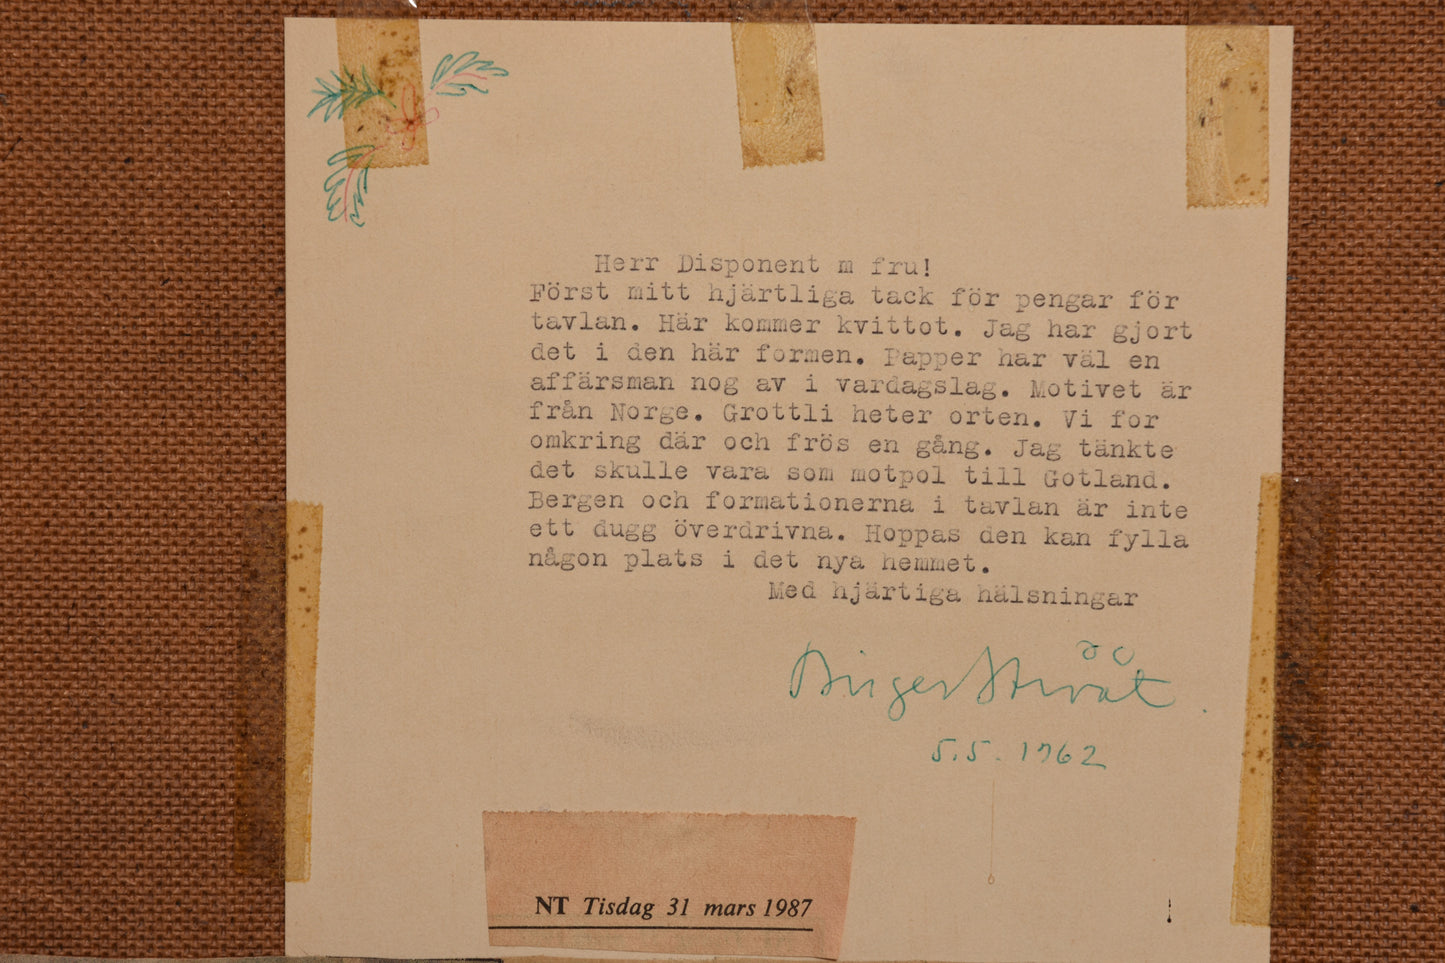 Herr Disponent m fru!
Först mitt hjärtliga tack för pengar för
tavlan. Här kommer kvittot. Jag har gjort
det i den här formen. Papper har väl en
affärsman nog av i vardagslag. Motivet är
från Norge. Grottli heter orten. Vi for
omkring där och frös en gång. Jag tänkte
det skulle vara som motpol till Gotland.
Bergen och formationerna i tavlan är inte
ett dugg överdrivna. Hoppas den kan fylla
någon plats i det nya hemmet.
Med hjärtiga hälsningar
Birger
5.5. 1962
NT Tisdag 31 mars 1987